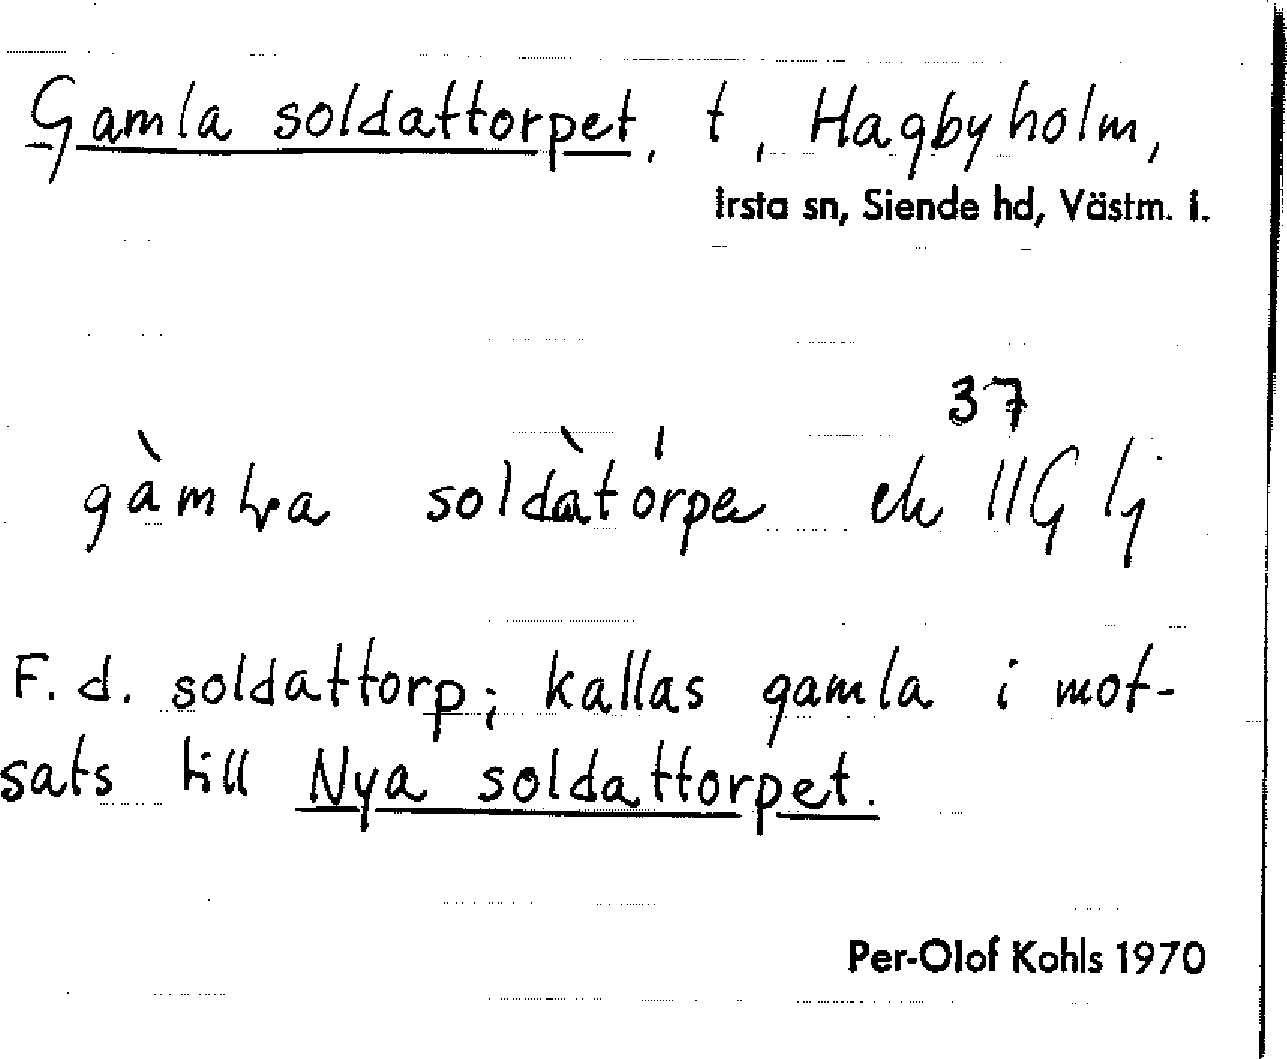 Gamla soldattorpet, t, Hagbyholm,
Irsta sn, Siende hd, Västm. l.
37
F. d. soldattorp; kallas gamla i mot-
sats till Nya soldattorpet.
Per-Olof Kohls 1970